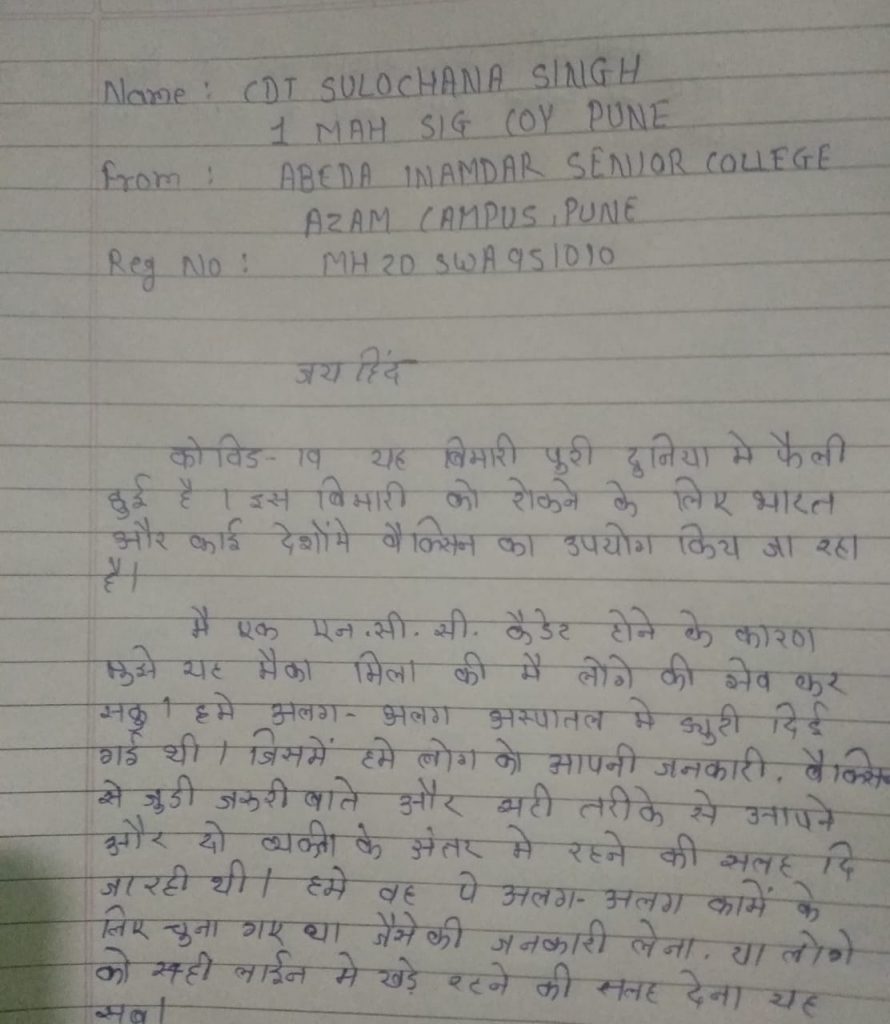 Name : CDT SULOCHANA SINGH
1 MAH SIG COY PUNE
From : ABEDA INAMDAR SENIOR COLLEGE
AZAM CAMPUS, PUNE
Reg No : MH 20 SWA 951010
जय हिंद
कोविड- 19 यह बिमारी पुरी दुनिया मे फैली
हुई है । इस बिमारी को रोकने के लिए भारत
और काई देशोंमे वैक्सिन का उपयोग किय जा रहा
है।
मै एक एन.सी.सी. कैडेट होने के कारण
मुझे यह मैका मिला की मै लोगे की सेव कर
सकु । हमे अलग- अलग अस्पातल मे ड्युटी दिई
गई थी । जिसमें हमे लोग को आपनी जनकारी, वैक्सिन
से जुडी जरुरी बाते और सही तरीके से आपने
और दो व्यक्ती के अंतर मे रहने की सलह दि
जा रही थी । हमे वह पे अलग- अलग कामें के
लिए चुना गए था जैसे की जनकारी लेना, या लोगे
को सही लाईन मे खड़े रहने की सलह देना यह
सब।